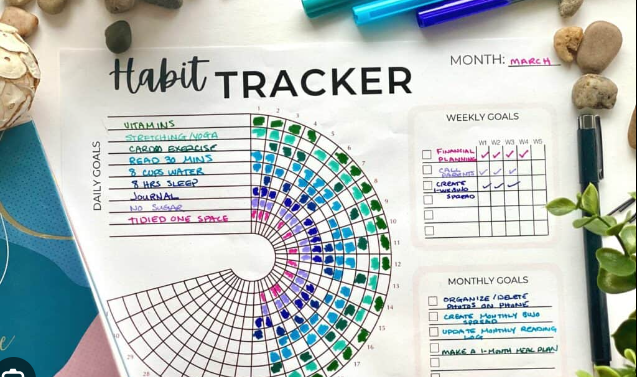 Habit TRACKER
MONTH: MARCH
DAILY GOALS
VITAMINS
STRETCHING/YOGA
CARDIO EXERCISE
READ 30 MINS
8 CUPS WATER
8 HRS SLEEP
JOURNAL
NO SUGAR
TIDIED ONE SPACE
1 2 3 4 5 6 7 8 9 10 11 12 13 14 15 16 17
28 29
WEEKLY GOALS
W1 W2 W3 W4 W5
FINANCIAL
PLANNING
CALL
PARENTS
CREATE
SPREAD
MONTHLY GOALS
ORGANIZE/DELETE
PHOTOS ON PHONE
CREATE MONTHLY BUJO
SPREAD
UPDATE MONTHLY READING
LOG
MAKE A 1-MONTH MEAL PLAN